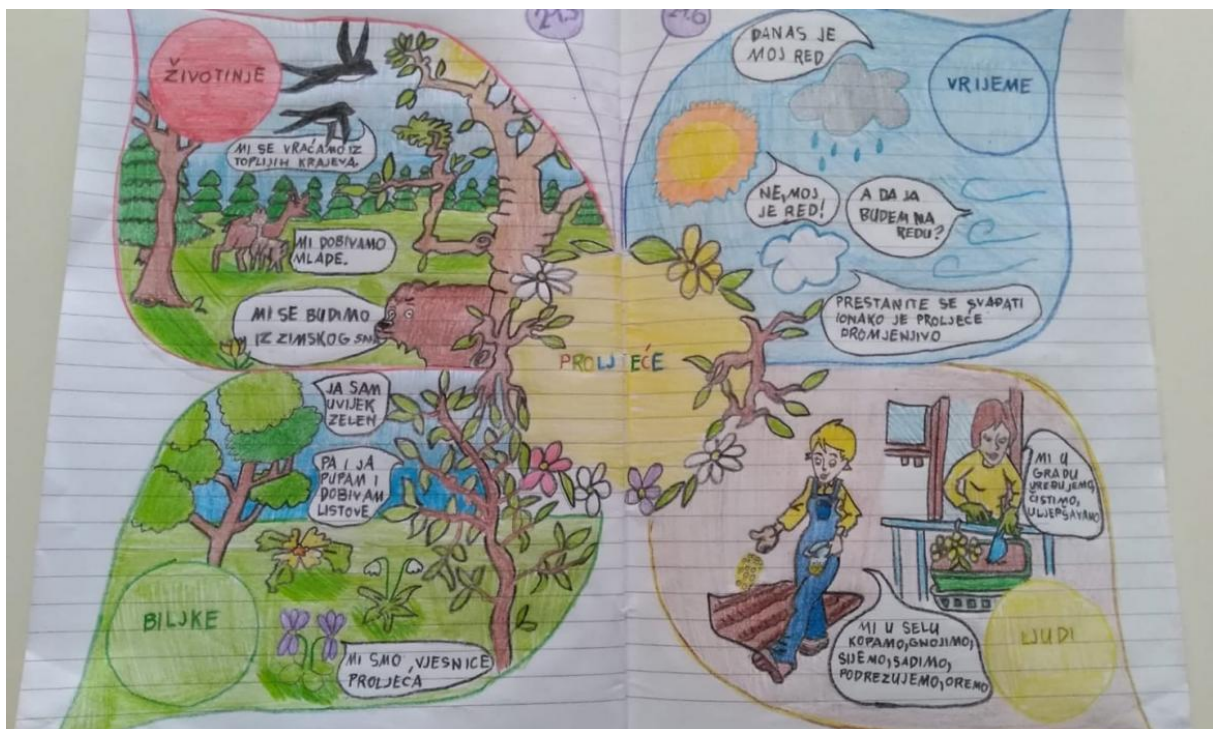 21.3
21.6
ŽIVOTINJE
MI SE VRAĆAMO IZ
TOPLIJIH KRAJEVA.
MI DOBIVAMO
MLADE.
MI SE BUDIMO
IZ ZIMSKOG SNA
DANAS JE
MOJ RED
VRIJEME
NE, MOJ
JE RED!
A DA JA
BUDEM NA
REDU?
PRESTANITE SE SVAĐATI
IONAKO JE PROLJEĆE
PROMJENJIVO
PROLJEĆE
JA SAM
UVIJEK
ZELEN
PA I JA
PUPAM I
DOBIVAM
LISTOVE
BILJKE
MI SMO VJESNICE
PROLJEĆA
MI U
GRADU
UREĐUJEMO,
ČISTIMO,
ULJEPŠAVAMO
MI U SELU
KOPAMO, GNOJIMO,
SIJEMO, SADIMO,
PODREZUJEMO, OREMO
LJUDI